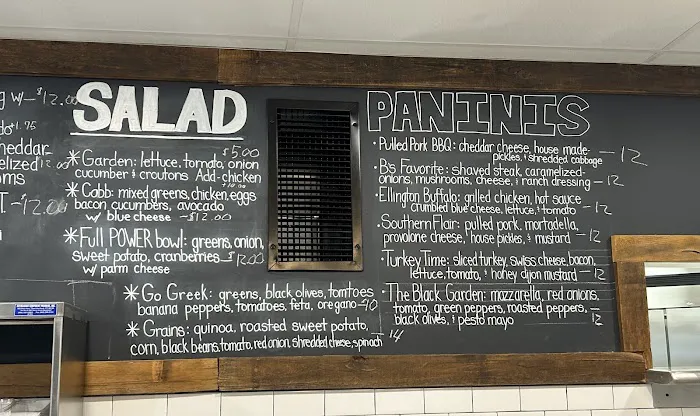 g w/ - $12.00
do +1.75
heddar
elized 12.00
oms
T - 12.00
SALAD
* Garden: lettuce, tomato, onion $5.00
cucumber & croutons Add-chicken
* Cobb: mixed greens, chicken, eggs
bacon, cucumbers, avocado
w/ blue cheese - $12.00
* Full POWER bowl: greens, onion,
sweet potato, cranberries $12.00
w/ parm cheese
* Go Greek: greens, black olives, tomtoes
banana peppers, tomatoes, feta, oregano -
* Grains: quinoa, roasted sweet potato,
corn, black beans, tomato, red onion, shredded cheese, spinach 14
PANINIS
• Pulled Pork BBQ: cheddar cheese, house made-
pickles, & shredded cabbage - 12
• B's Favorite: shaved steak, caramelized-
onions, mushrooms, cheese, & ranch dressing - 12
• Ellington Buffalo: grilled chicken, hot sauce
& crumbled blue cheese, lettuce, & tomato - 12
• Southern Flair: pulled pork, mortadella,
provalone cheese, house pickles, & mustard - 12
• Turkey Time: sliced turkey, swiss cheese, bacon,
lettuce, tomato, & honey dijon mustard - 12
• The Black Garden: mozzarella, red onions,
tomato, green peppers, roasted peppers, -
black olives, & pesto mayo 12